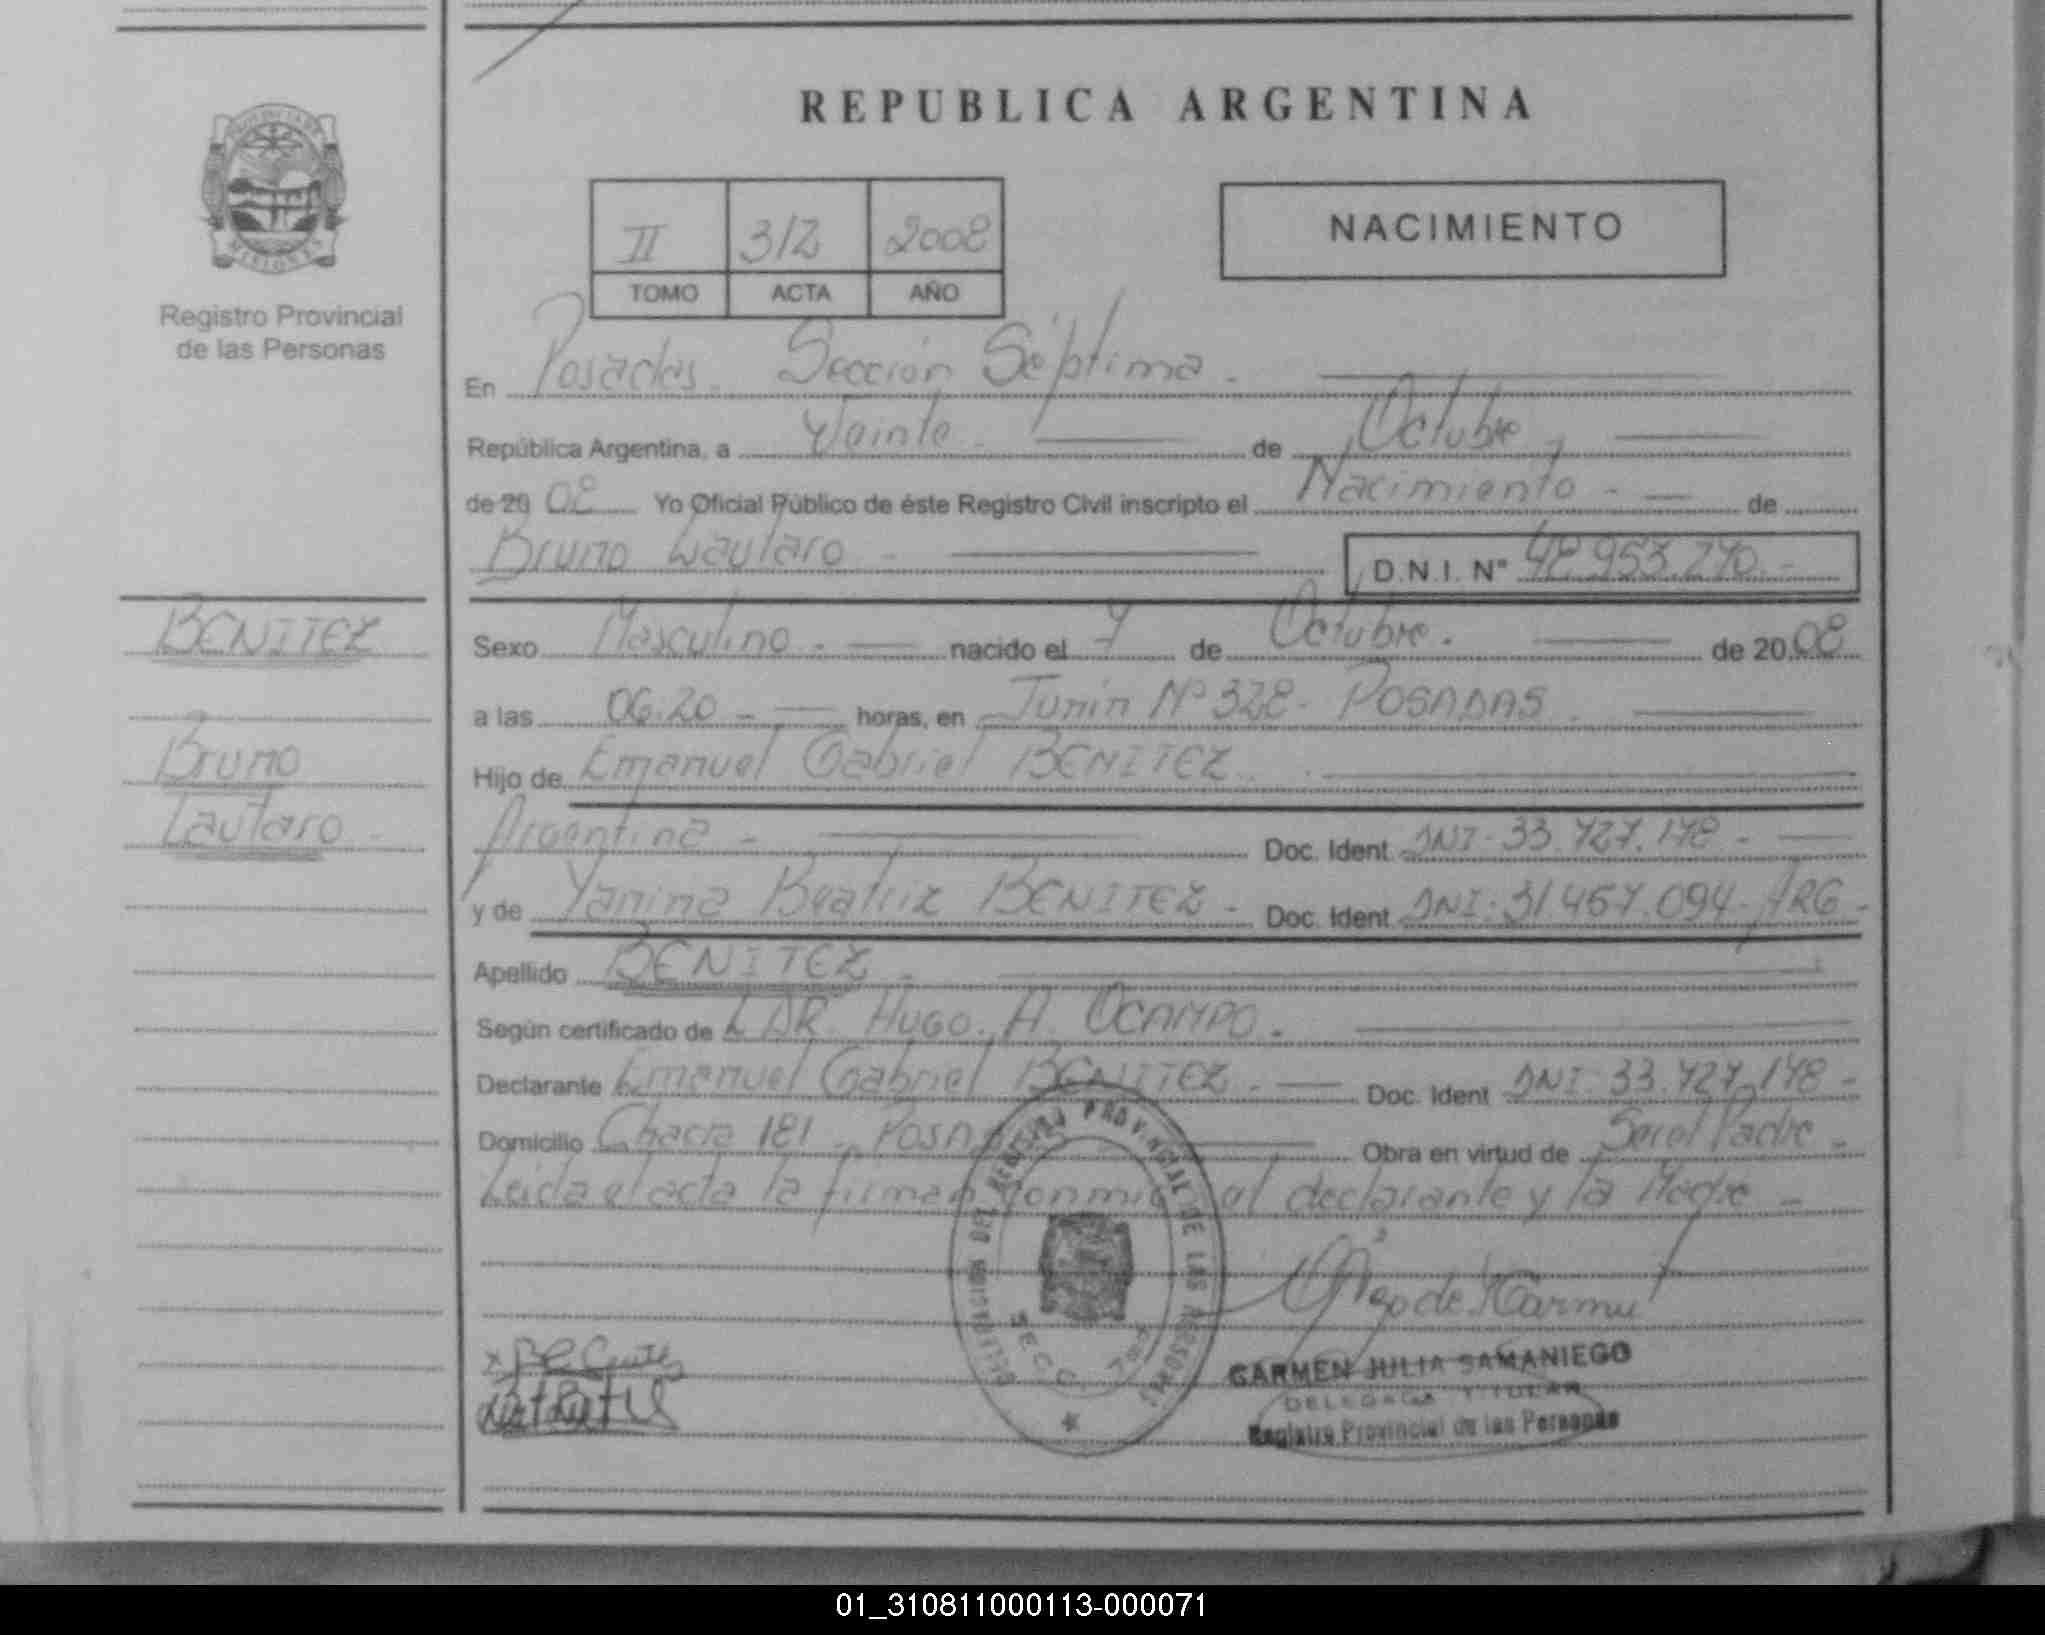 REPUBLICA ARGENTINA
PROVINCIA DE
MISIONES
Registro Provincial
de las Personas
II 312 2008
TOMO ACTA AÑO
NACIMIENTO
En Posadas. Sección Séptima.
República Argentina, a Veinte de Octubre,
de 2008 Yo Oficial Público de éste Registro Civil inscripto el Nacimiento de
Bruno Lautaro D.N.I. Nº 48.953.270.-
BENITEZ
Bruno
Lautaro
Sexo Masculino.- nacido el 7 de Octubre. de 2008
a las 06.20 horas, en Junín Nº 328- POSADAS.
Hijo de Emanuel Gabriel BENITEZ.
Argentina - Doc. Ident. DNI. 33.727.178 -
y de Yanina Beatriz BENITEZ - Doc. Ident. DNI. 31.467.094- ARG-
Apellido BENITEZ -
Según certificado de DR. HUGO. A. OCAMPO.
Declarante Emanuel Gabriel BENITEZ - Doc. Ident DNI. 33.727.178 -
Domicilio Chacra 181 - Obra en virtud de Ser el Padre -
Leida el acta la firman conmigo el declarante y la Madre -
DELEGACION DEL REGISTRO PROVINCIAL DE LAS PERSONAS
SECC.
CARMEN JULIA SAMANIEGO
DELEGADA TITULAR
Registro Provincial de las Personas
01_310811000113-000071